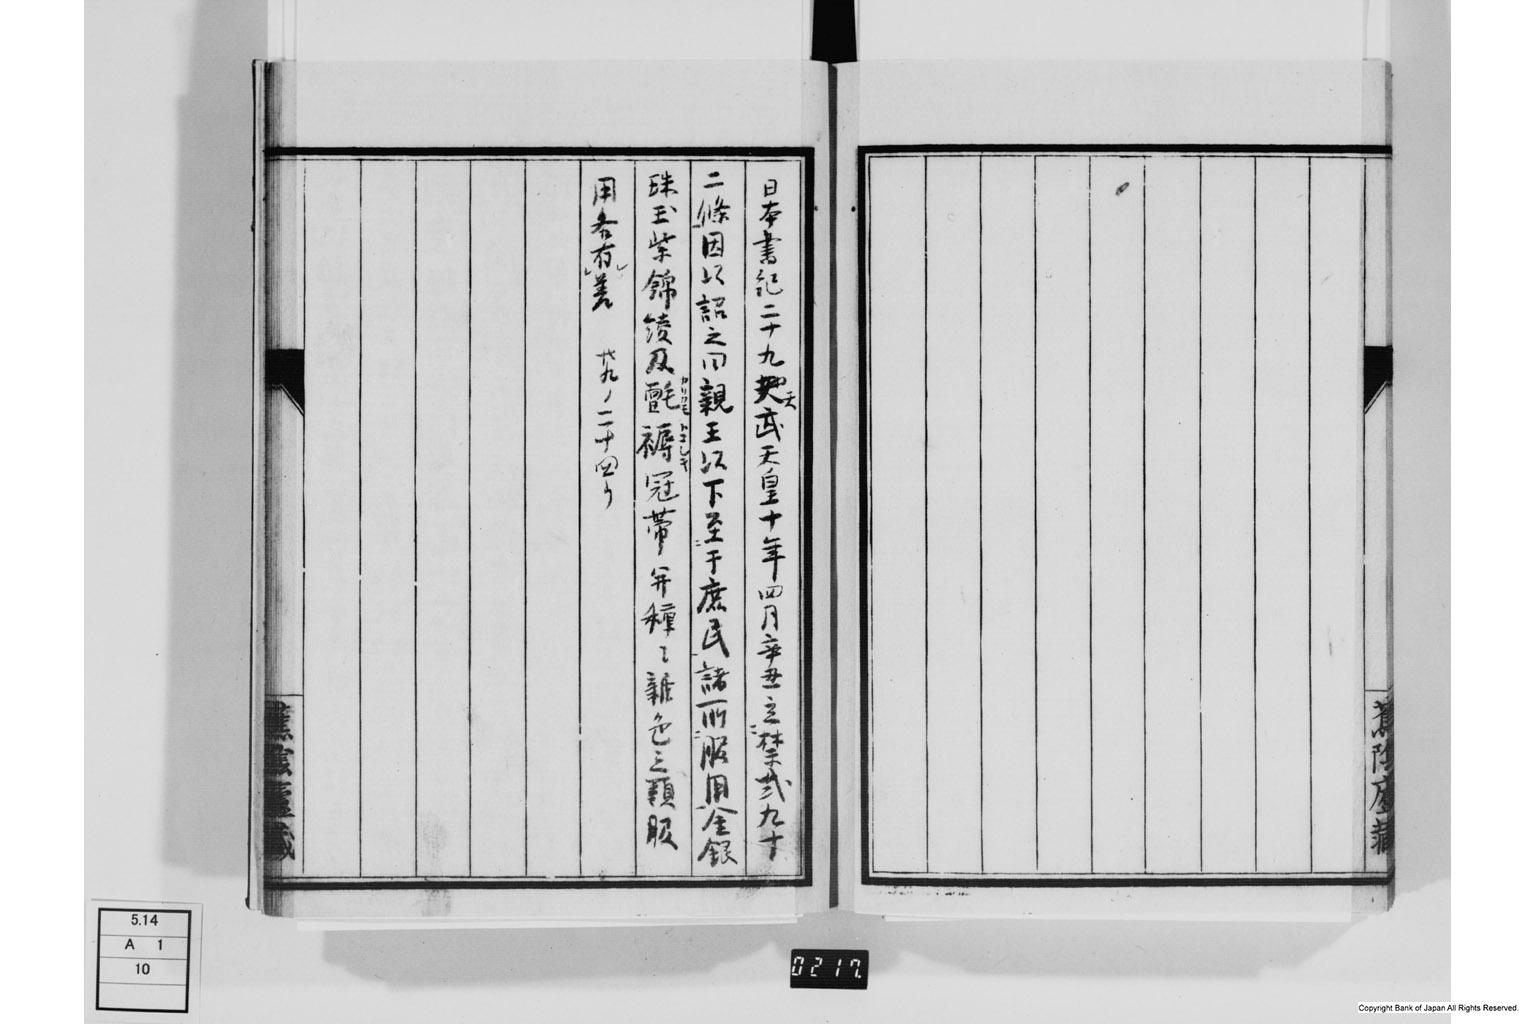 日本書紀二十九天武天皇十年四月辛丑立禁式九十
二條因以詔之曰親王以下至于庶民諸所服用金銀
珠玉紫錦綾及氈褥冠帯并種々雜色之類服
カリカモ
トコシキ
用各有差 廿九ノ二十四り
蕉陰廬藏
蕉陰廬藏
5.14
A 1
10
0217
Copyright Bank of Japan All Rights Reserved.